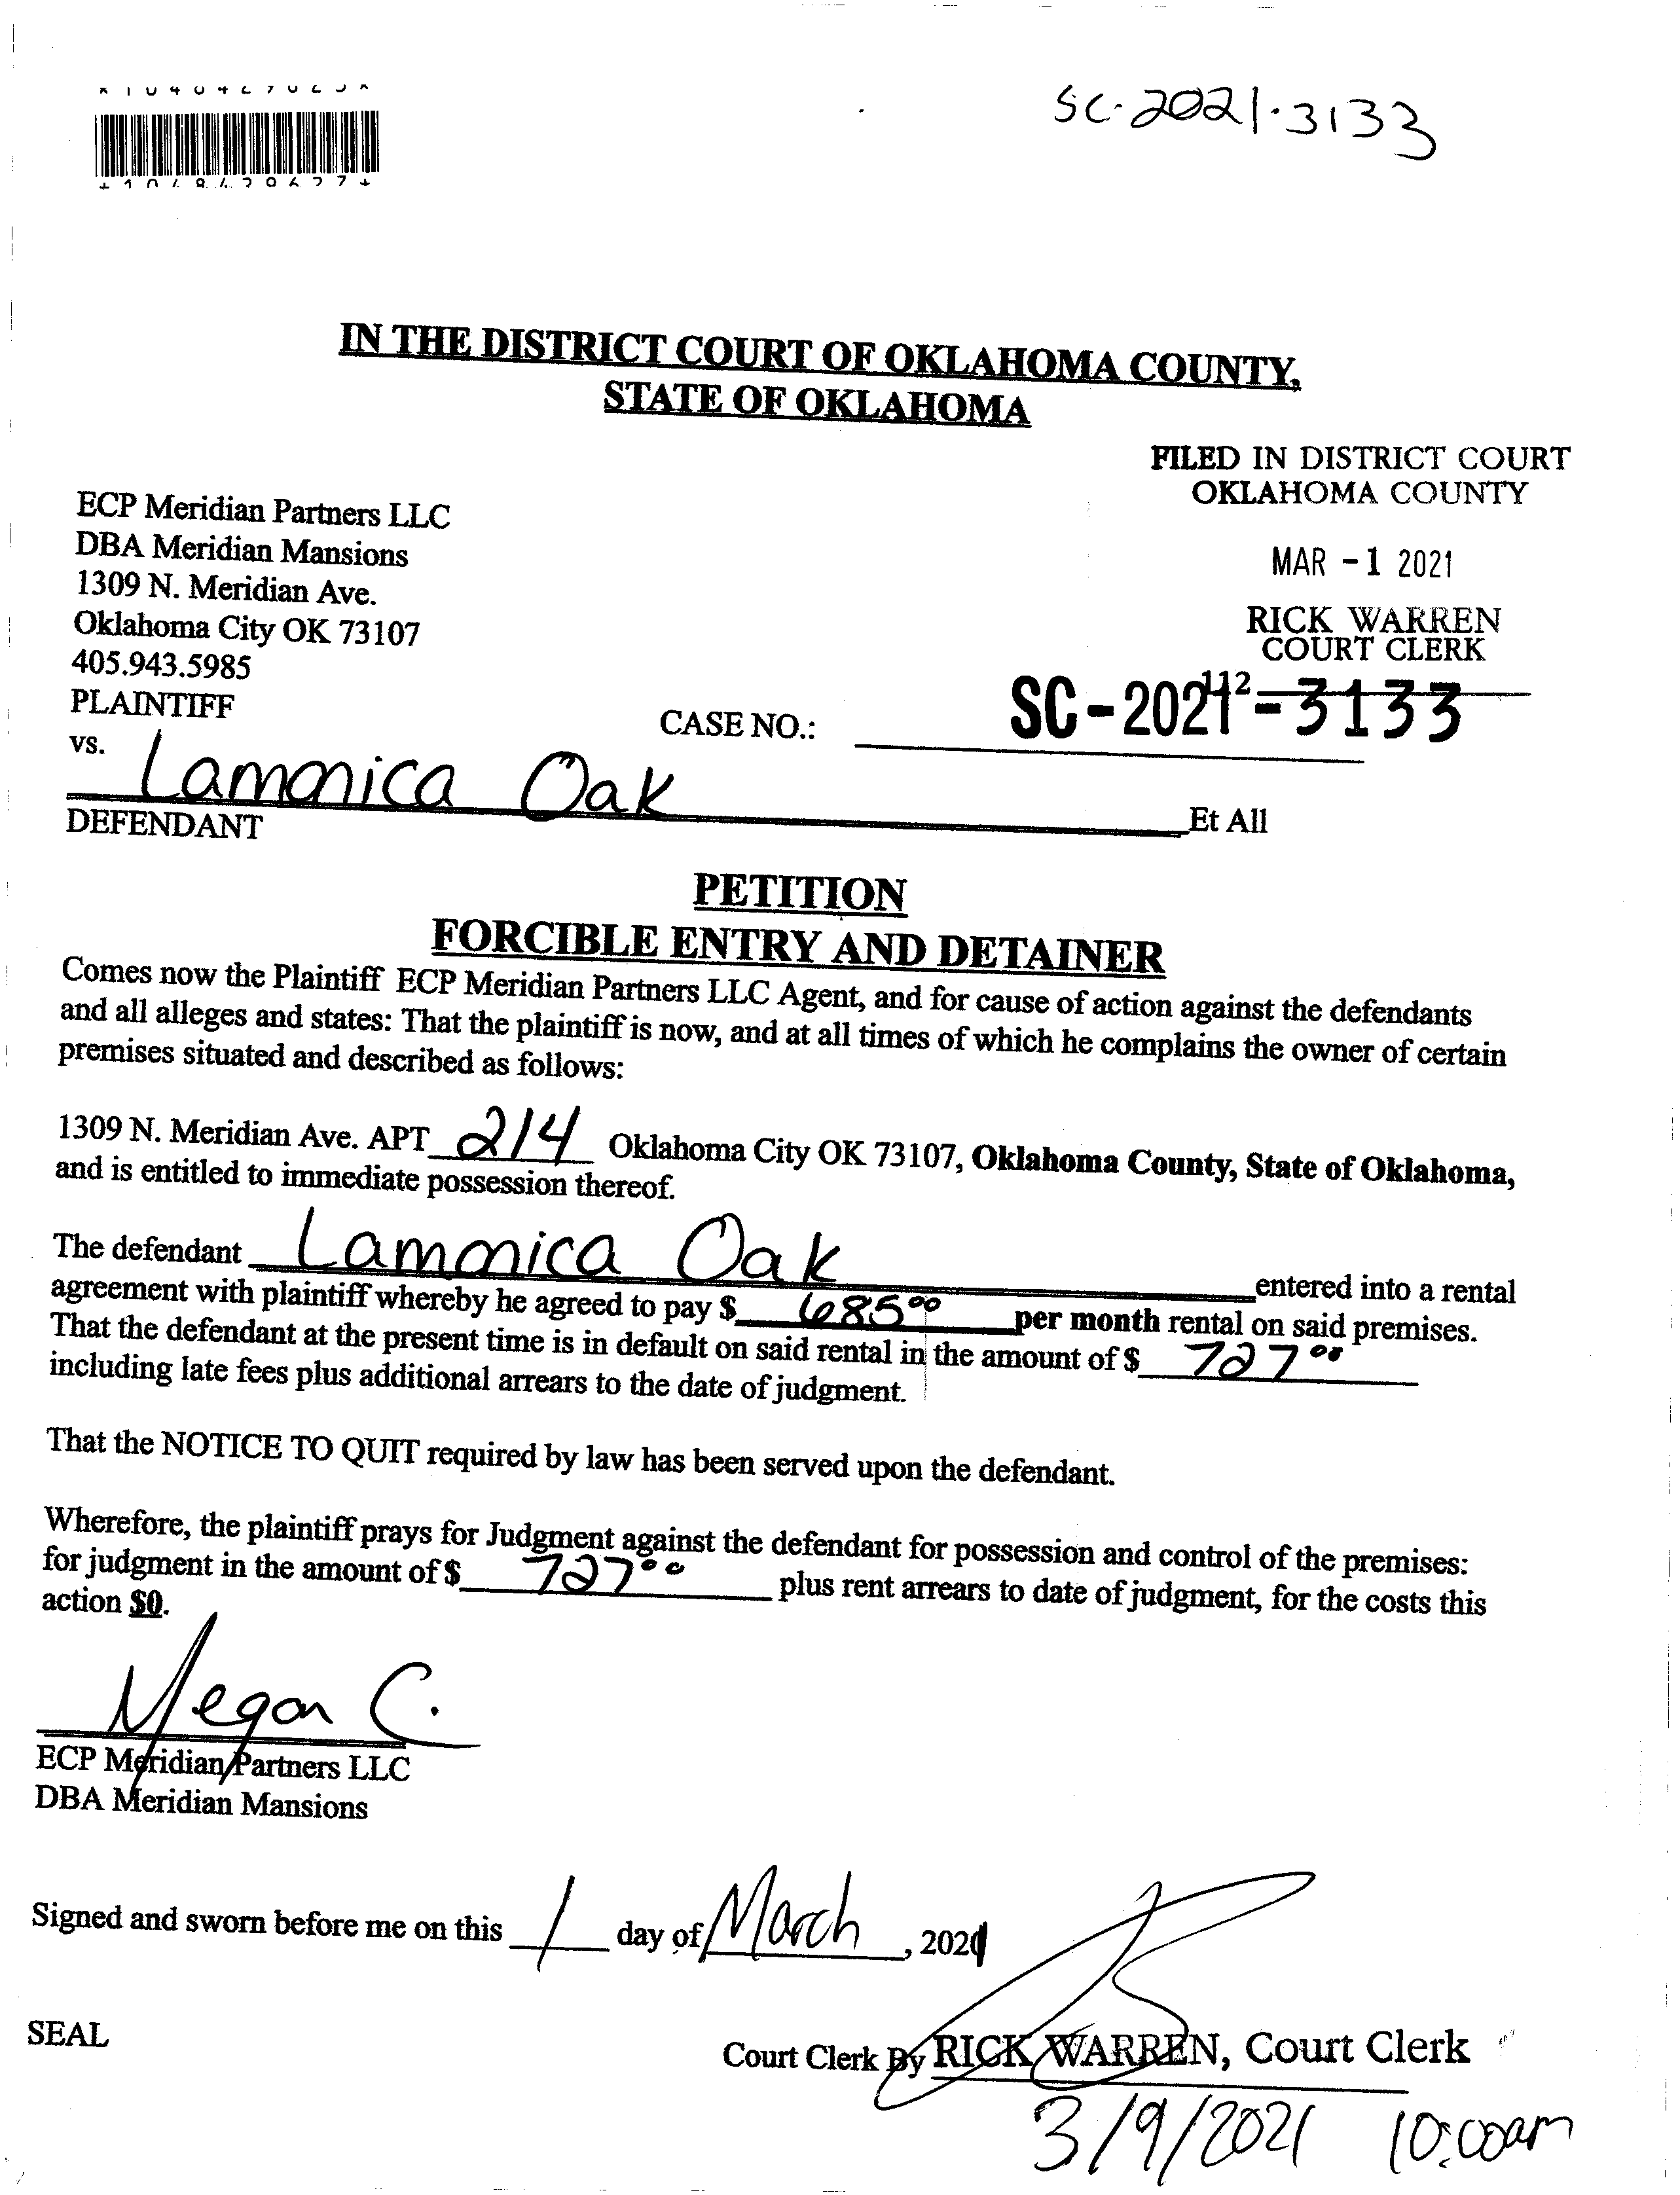 SC-2021-3133
*1048429627*
IN THE DISTRICT COURT OF OKLAHOMA COUNTY,
STATE OF OKLAHOMA
FILED IN DISTRICT COURT
OKLAHOMA COUNTY
MAR -1 2021
RICK WARREN
COURT CLERK
112
ECP Meridian Partners LLC
DBA Meridian Mansions
1309 N. Meridian Ave.
Oklahoma City OK 73107
405.943.5985
PLAINTIFF
CASE NO.: SC-2021-3133
vs.
Lamonica Oak Et All
DEFENDANT
PETITION
FORCIBLE ENTRY AND DETAINER
Comes now the Plaintiff ECP Meridian Partners LLC Agent, and for cause of action against the defendants
and all alleges and states: That the plaintiff is now, and at all times of which he complains the owner of certain
premises situated and described as follows:
1309 N. Meridian Ave. APT 214 Oklahoma City OK 73107, Oklahoma County, State of Oklahoma,
and is entitled to immediate possession thereof.
The defendant Lamonica Oak entered into a rental
agreement with plaintiff whereby he agreed to pay $ 685.00 per month rental on said premises.
That the defendant at the present time is in default on said rental in the amount of $ 727.00
including late fees plus additional arrears to the date of judgment.
That the NOTICE TO QUIT required by law has been served upon the defendant.
Wherefore, the plaintiff prays for Judgment against the defendant for possession and control of the premises:
for judgment in the amount of $ 727.00 plus rent arrears to date of judgment, for the costs this
action $0.
Megan C.
ECP Meridian Partners LLC
DBA Meridian Mansions
Signed and sworn before me on this 1 day of March, 2021
SEAL
Court Clerk By RICK WARREN, Court Clerk
3/9/2021 10:00am